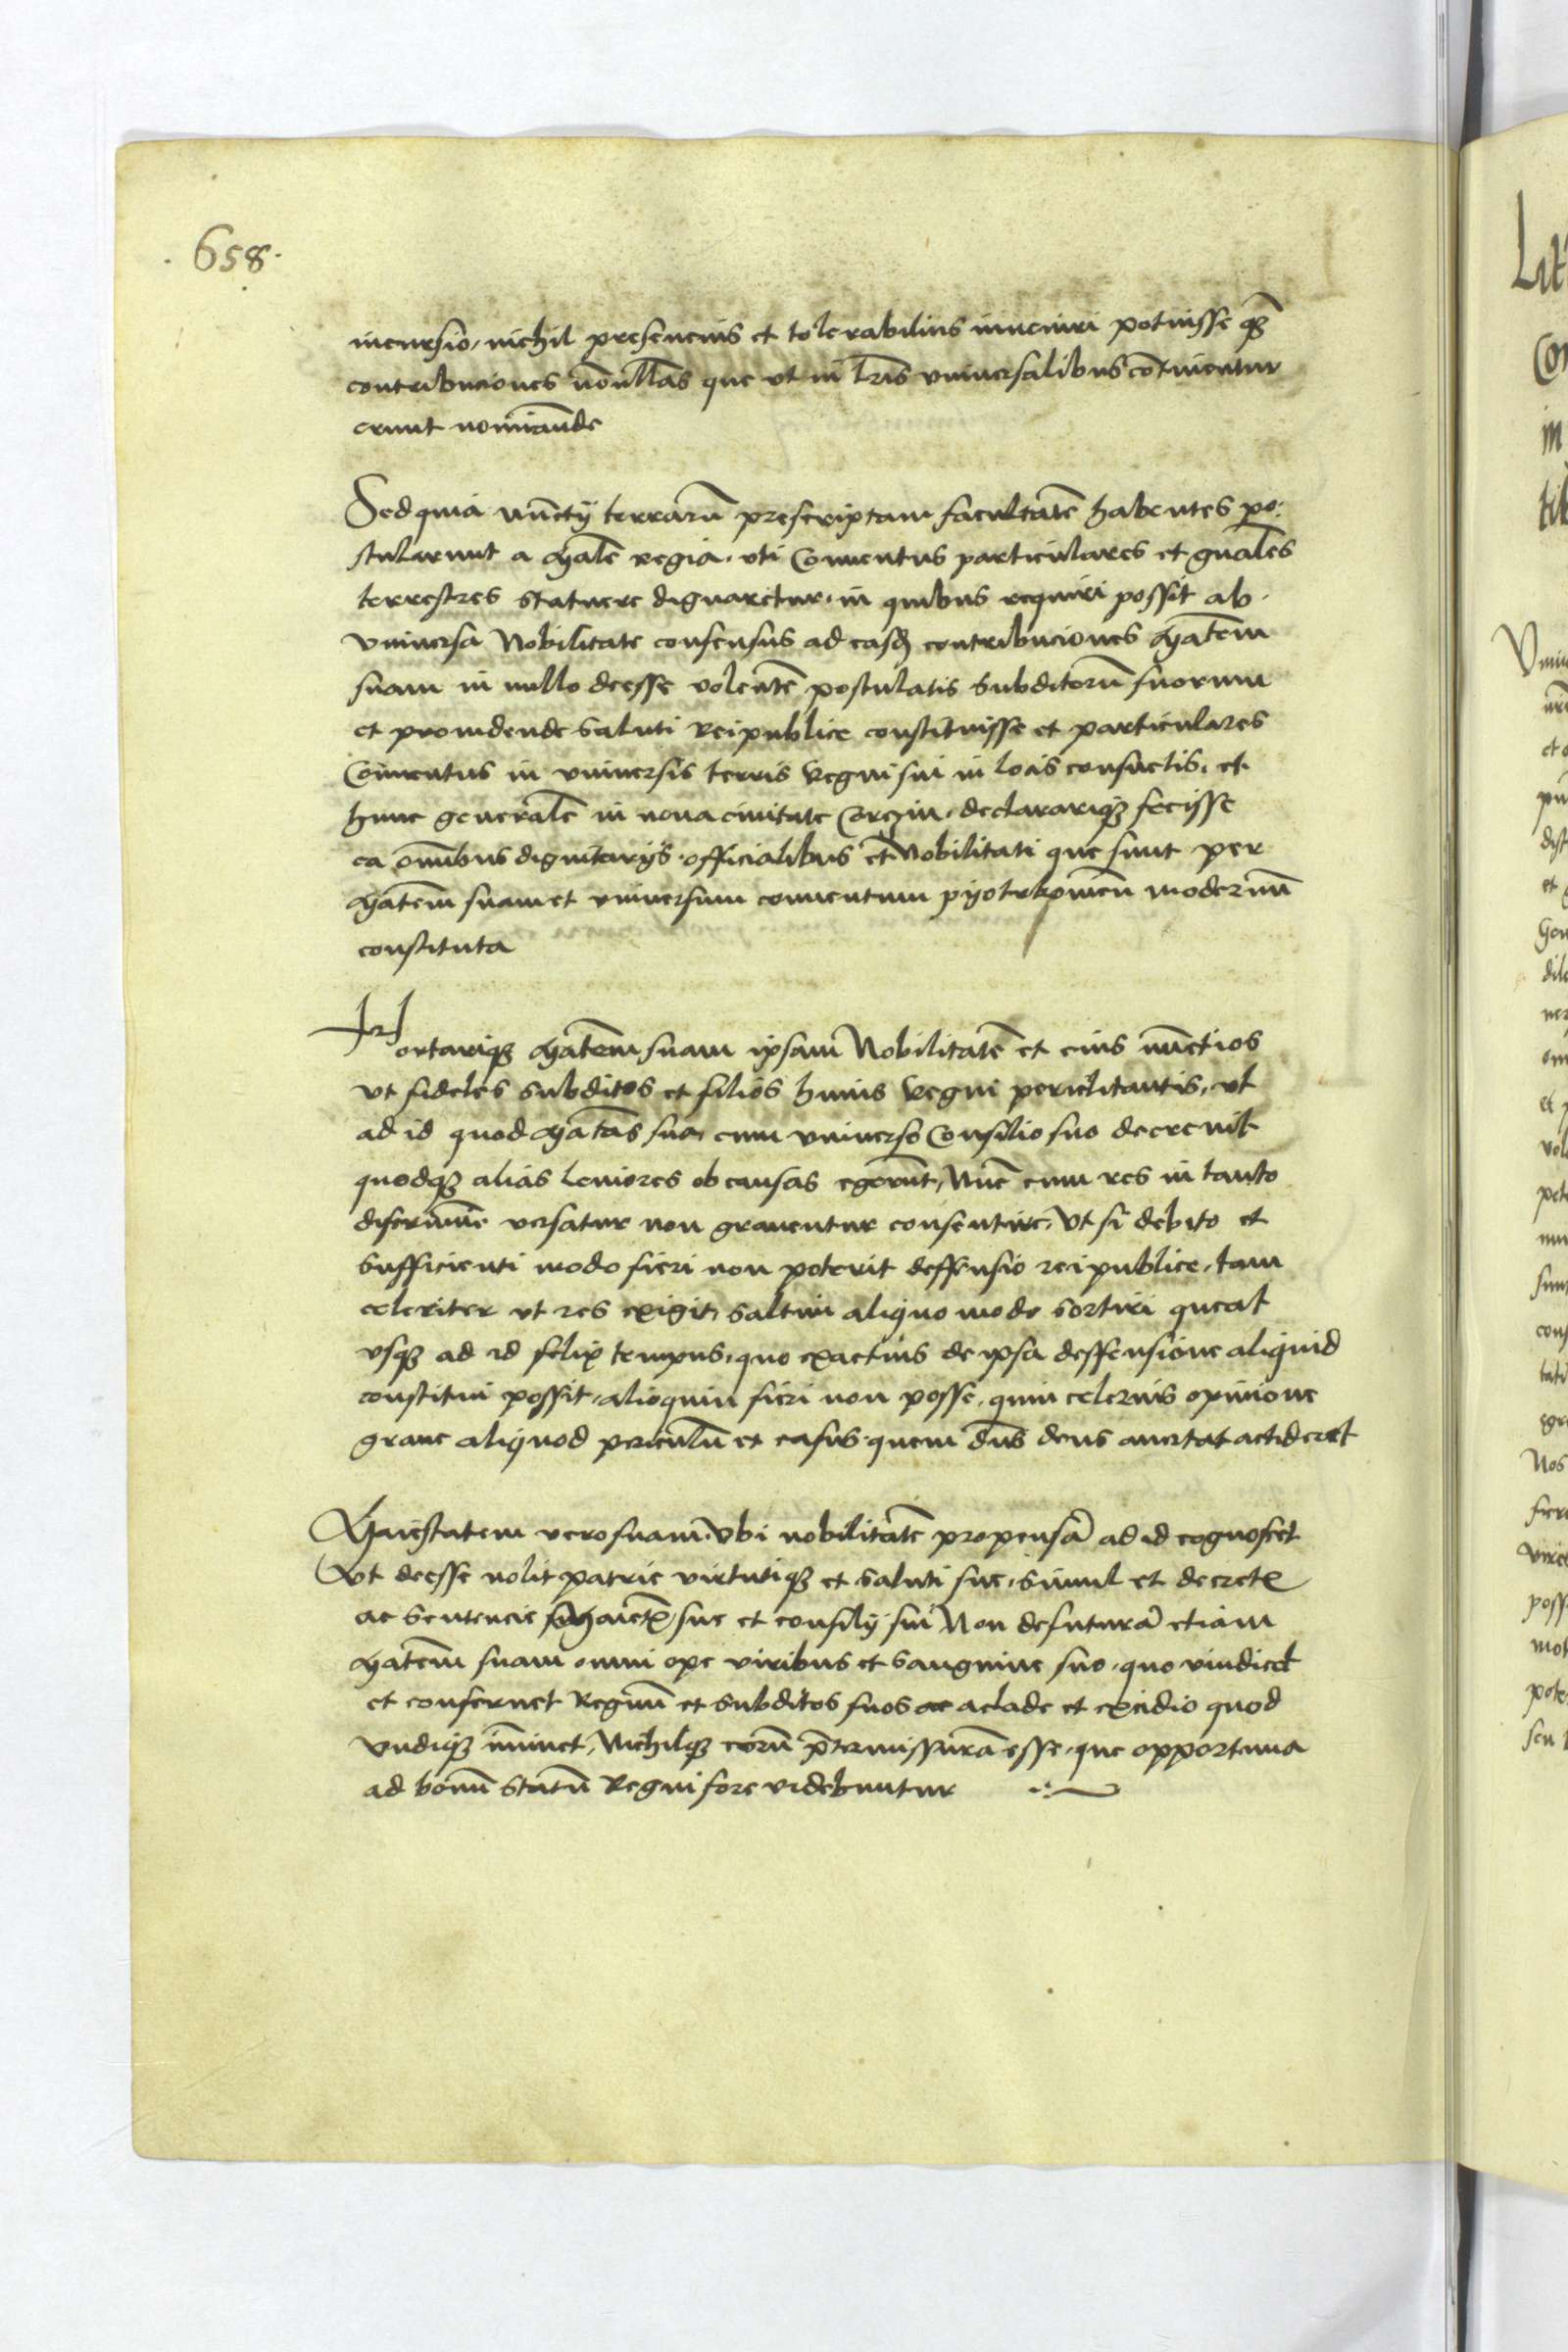 . 658 .
incursio, nichil presencius et tolerabilius inveniri potuisse qȝ
contribuciones nōnullas que ut in lr̄is universalibus cōtinentur
erunt nominande
Sed quia nūcty terrarū prescriptam facultatē habentes po:
stularunt a Mate regia. uti Conventus particulares et gn̄ales
terrestres statuere dignaretur. in quibus requiri possit ab.
universa Nobilitate consensus ad easdȝ contribuciones Matem
suam in nullo deesse volentē postulatis subditorū suorum
et providende saluti Reipublice constituisse et particulares
Conventus in universis terris Regni sui in locis consuetis. et
hunc generalē in nova civitate Corczin. declararique fecisse
ea om̄ibus dignitarijs. officialibus et Nobilitati que sunt per
Matem suam et universum conventum pyotrkovien̄ modernū
constituta
Hortarique Matem suam ipsam Nobilitatē et eius nūctios
ut fideles subditos et filios huius Regni periclitantis. ut
ad id quod Matas sua, cum universo Consilio suo decrevit
quodque alias leviores ob causas egerunt, Nūc cum res in tanto
discrimine versatur non graventur consentire, Ut si debito et
sufficienti modo fieri non poterit deffensio reipublice, tam
celeriter ut res exigit, saltim aliquo modo sortiri queat
usque ad id felix tempus, quo exactius de ipsa deffensione aliquid
constitui possit, alioquin fieri non posse, quin celerius opinione
grave aliquod periculū et casus. quem dn̄s deus avertat accideret
Maiestatem vero suam. Ubi nobilitatē propensā ad id cognoscet
Ut deesse nolit patrie virtutique et saluti sue, simul et decret
ac sentencie Maiet sue et consily sui Non defuturā etiam
Matem suam omni ope viribus et sanguine suo. quo vindicet
et conservet Regnū et subditos suos a clade et excidio quod
undique im̄inet, Nichilque eorū p̄termissurā esse, que opportuna
ad bonū statū Regni fore videbuntur